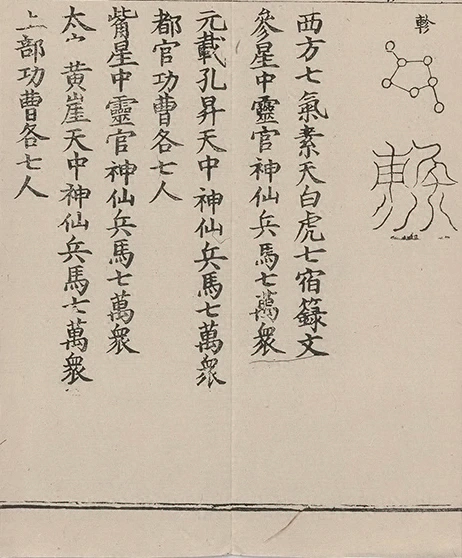 軫
西方七氣素天白虎七宿籙文
參星中靈官神仙兵馬七萬衆
元載孔昇天中神仙兵馬七萬衆
都官功曹各七人
觜星中靈官神仙兵馬七萬衆
太 黄崖天中神仙兵馬七萬衆
上部功曹各七人